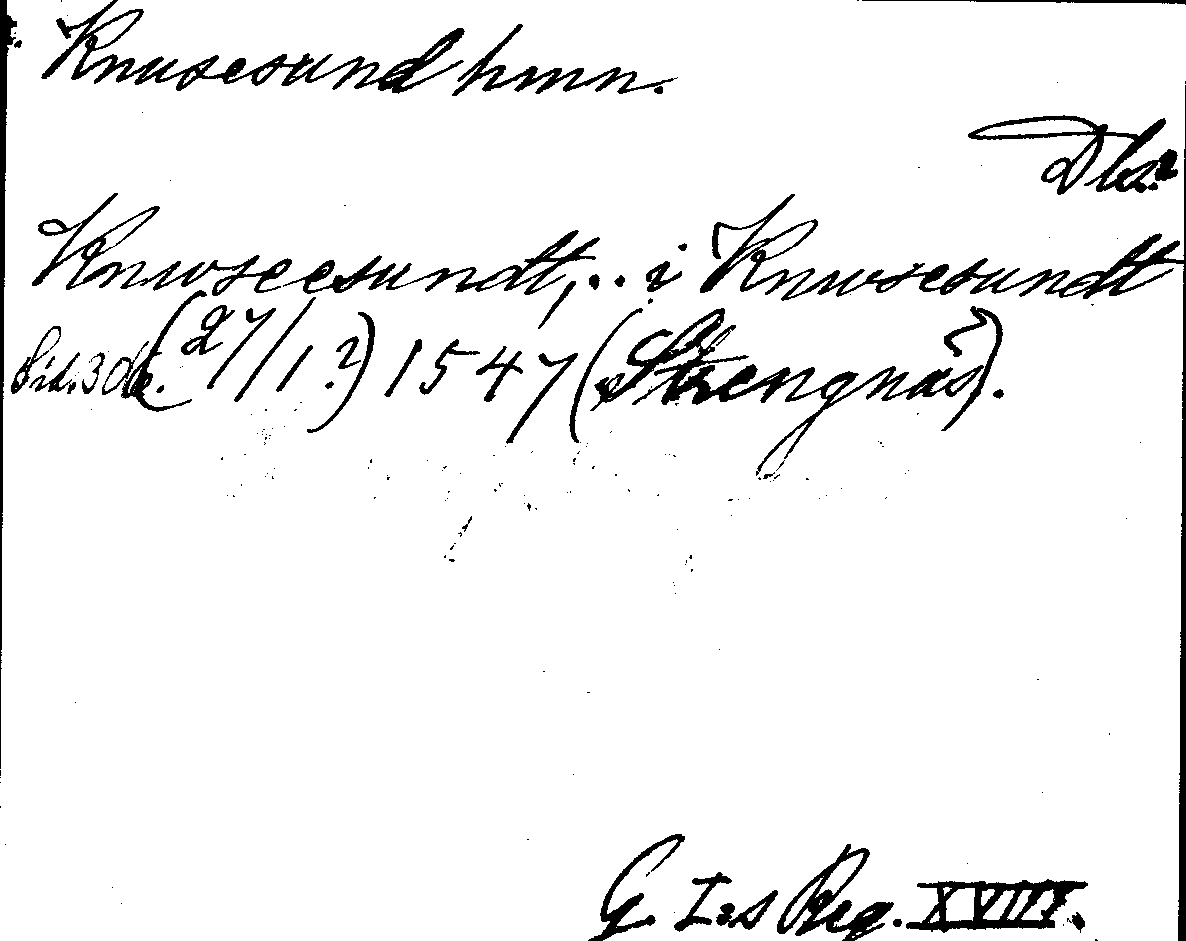 Knusesund hmn.
Dls.?
Knwseesundt,.. i Knwsesundt
Sid. 306. (27/1?) 1547 (Strengnäs).
G. I:s Reg. XVIII.